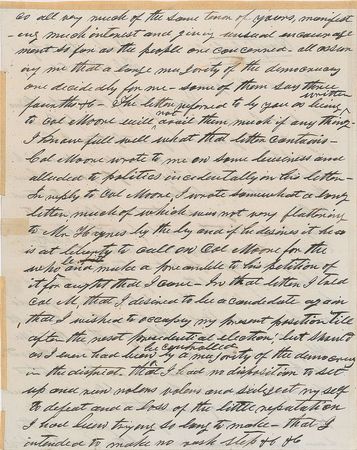 is all very much of the same tenor of yours, manifest
-ing much interest and giving unusual encourage
ment so far as the people are concerned - all assur
ing me that a large majority of the democracy
are decidedly for me - some of them say three
fourths &c - The letter referred to by you as being written
to Col Moore will not avail them much if any thing -
I know full well what that letter contains -
Col Moore wrote to me on some business and
alluded to politics incidentally in this letter -
In reply to Col Moore, I wrote somewhat a long
letter, much of which was not very flattering
to Mr Haynes by the by and if he desires it he
is at liberty to call on Col Moore for the
and make a preamble to his petition of
it for aught that I care - In that letter I told
Col M, that I desired to be a candidate again
that I wished to occupy my present position till
after the next presidential election; but should
as I ever had been by a majority of the democracy be controlled
in the district, that I had no disposition to set
up and run nolens volens and subject my self
to defeat and a loss of the little reputation
I had been trying so long to make - that I
intended to make no rash step &c &c